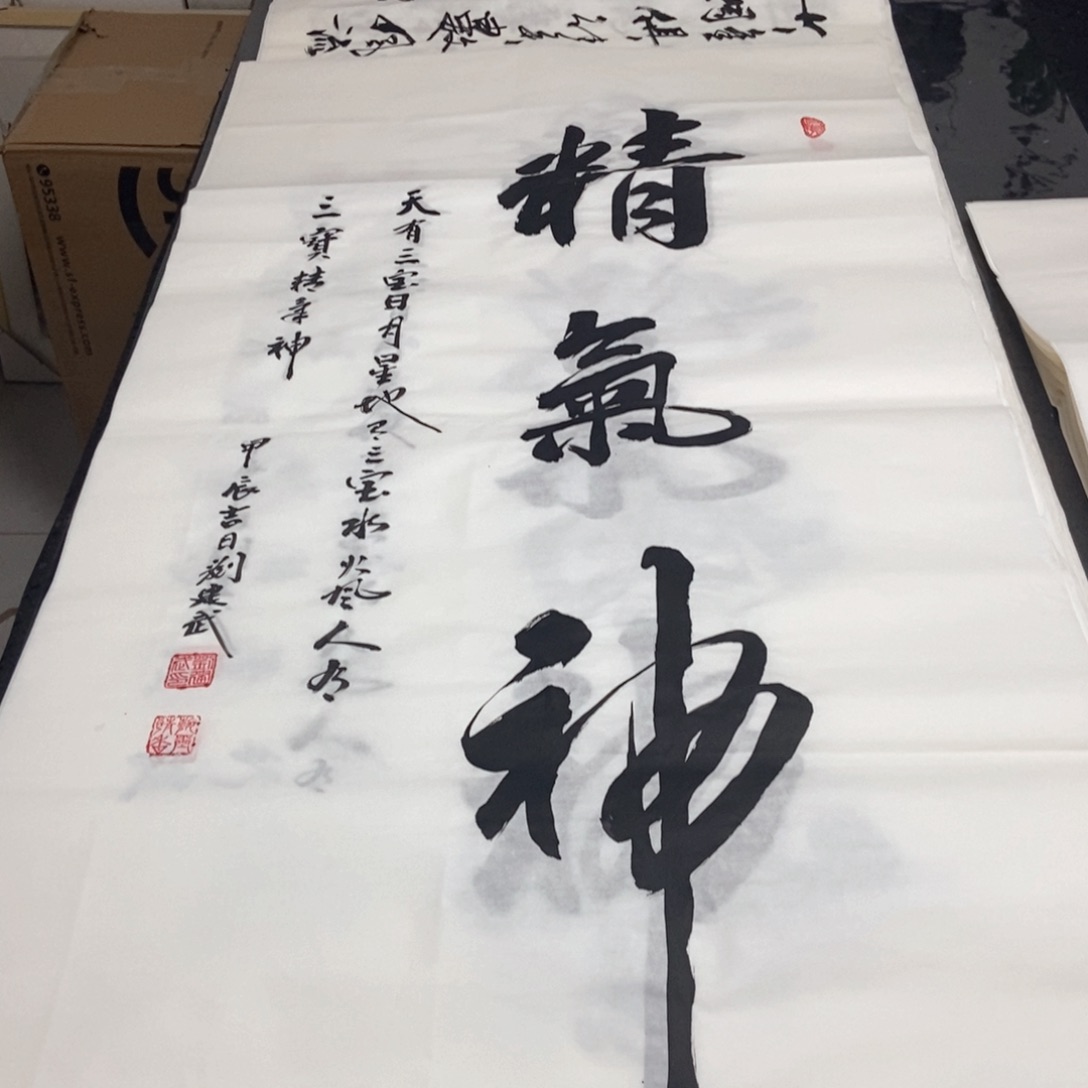 精氣神
天有三宝日月星地有三宝水火風人有
三寶精氣神
甲辰吉日劉建武
95338 www.sf-express.com